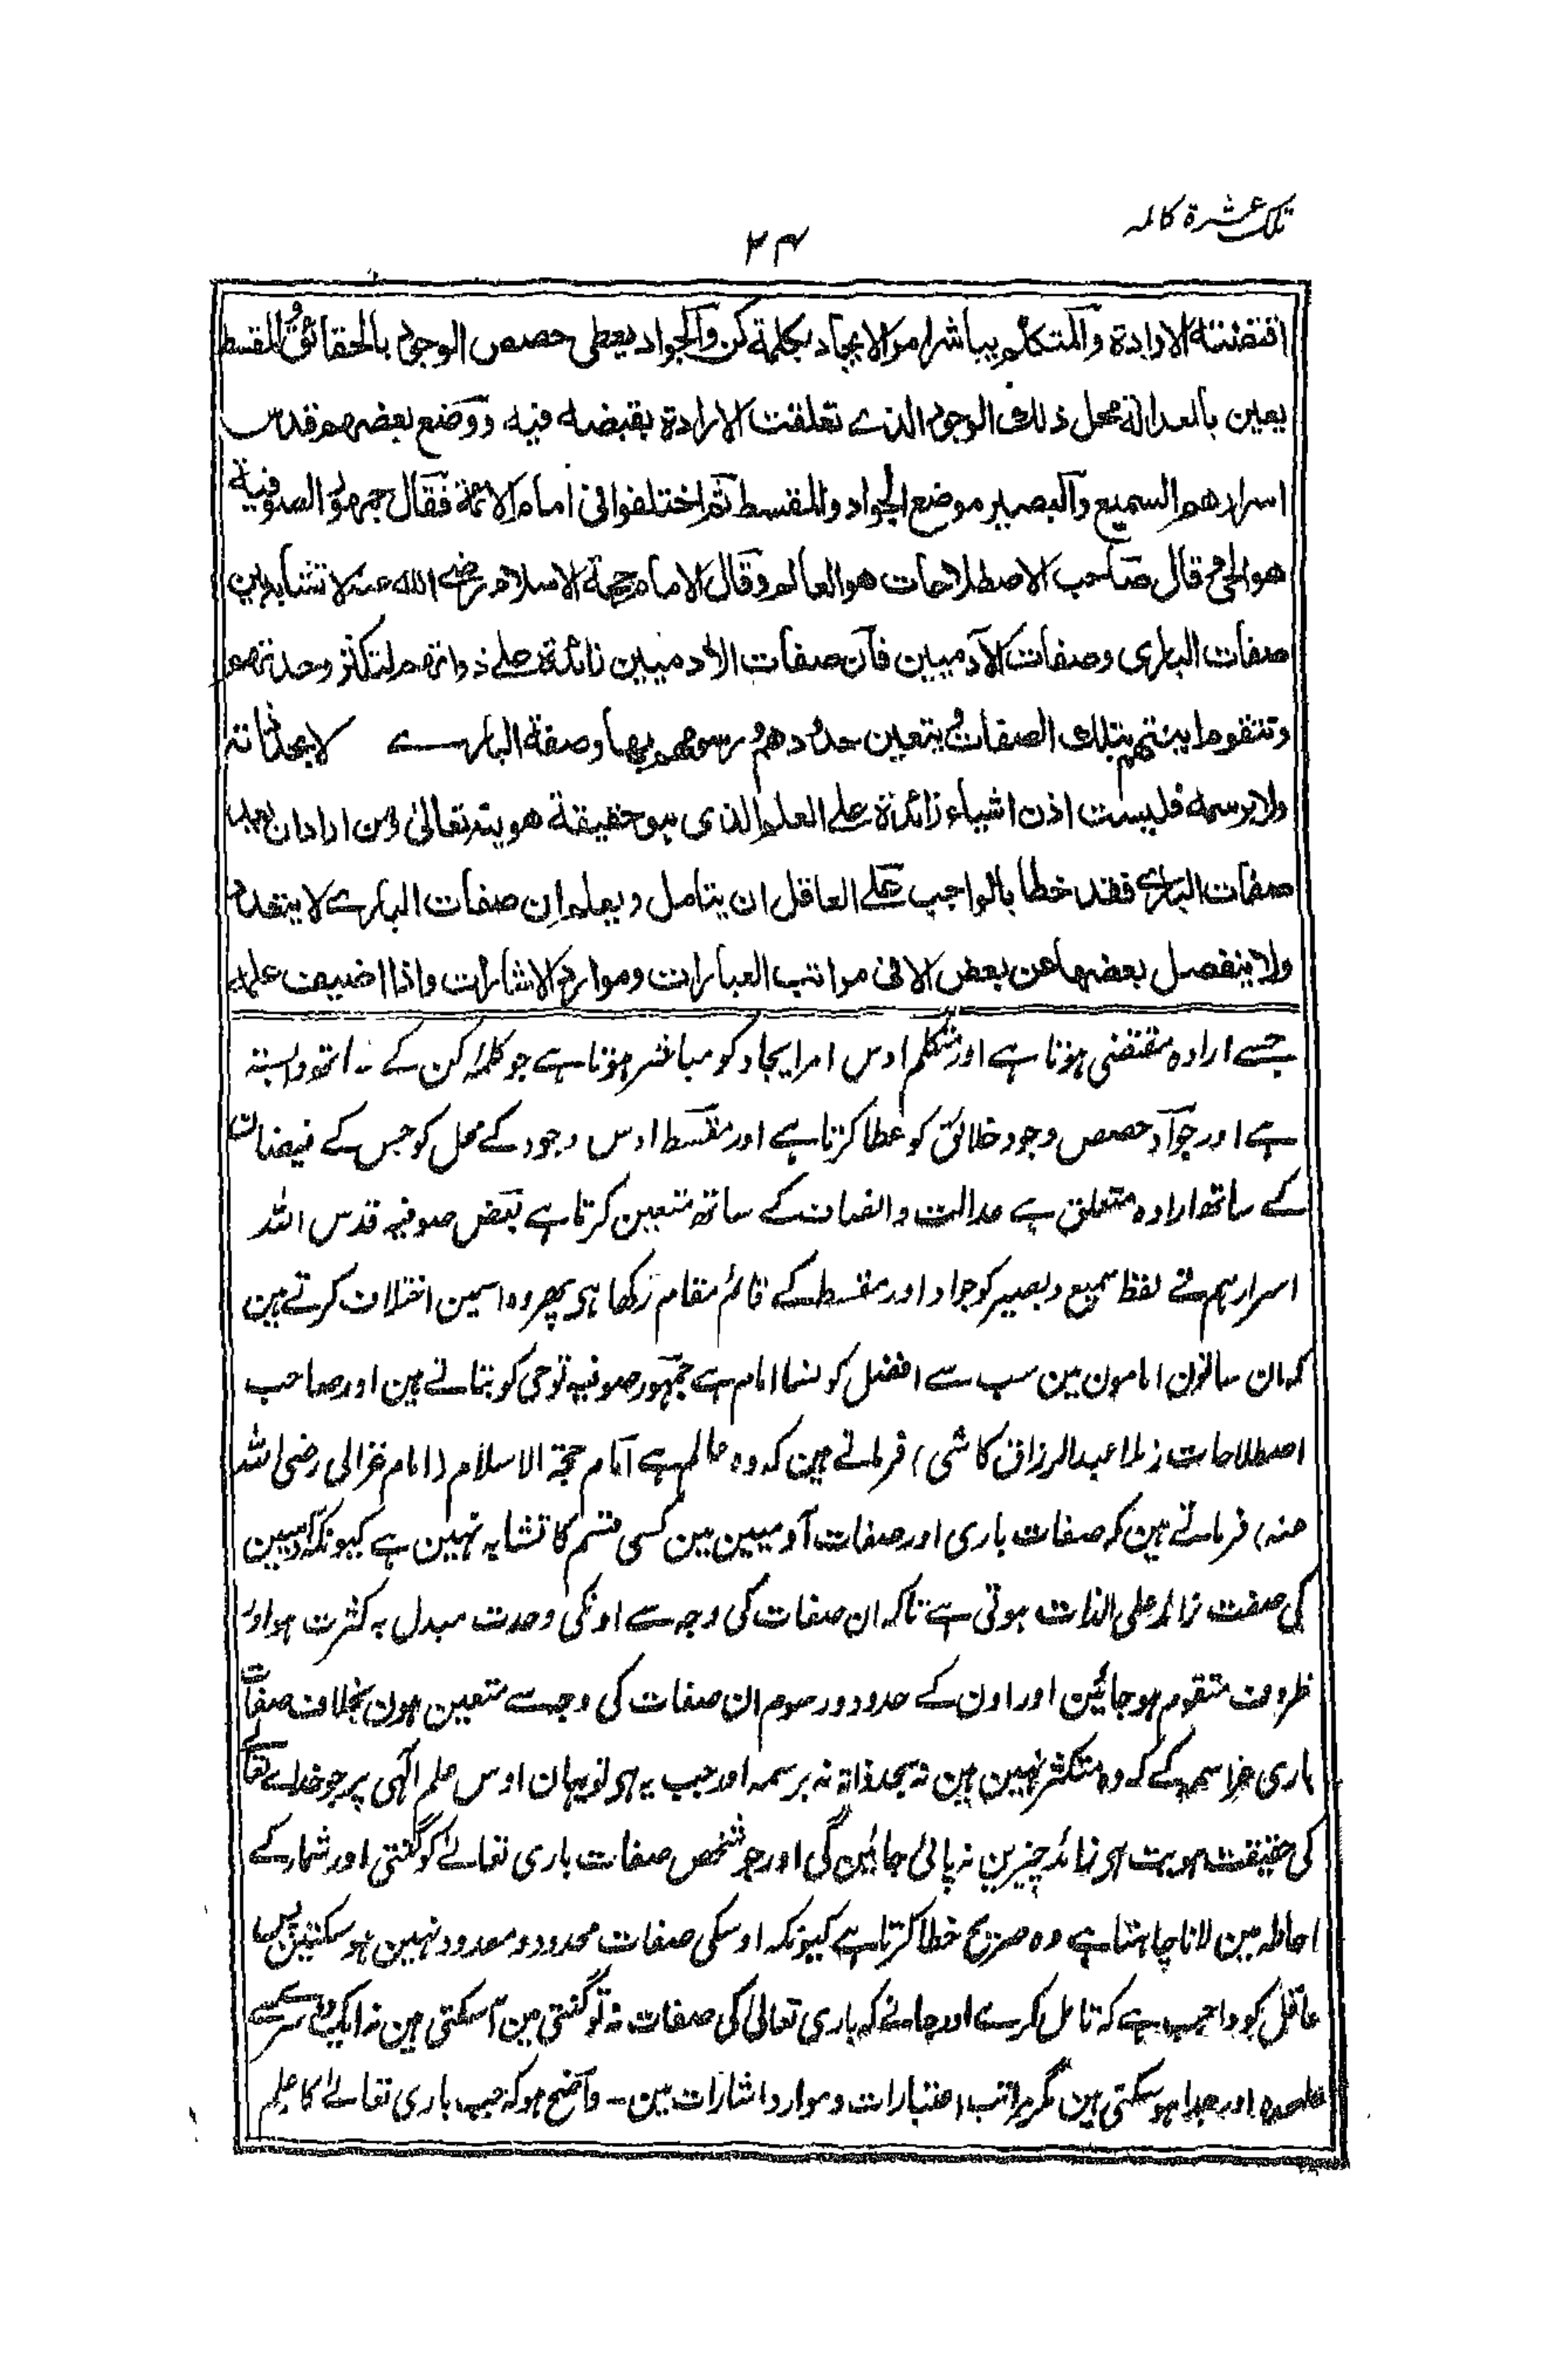 تلک عشرة کاملہ
۲۴
اقتضته الارادة والمتکلم یباشر امر الایجاد بکلمة کن والجواد یعطی حصص الوجود بالحقائق والمقسط
یعین بالعدالة محل ذلک الوجود الذے تعلقت الارادة بقبضه فیه، ووضع بعضهم قدس
اسرارهم السمیع والبصیر موضع الجواد والمقسط ثم اختلفوا فی امام الائمة فقال جمهور الصوفیة
هو الحی وقال صاحب الاصطلاحات هو العالم وقال الامام حجة الاسلام رضے الله عنه لا تشابه بین
صفات الباری وصفات الآدمیین فان صفات الآدمیین زائدة علے ذواتهم لتکثر وحدتهم
وتتقوم اینتهم بتلک الصفات ویتعین حدودهم ورسومهم بها وصفة البارے لا بحد ذاته
ولا برسمه فلیست اذن اشیاء زائدة علے العلم الذی هو حقیقة هویته تعالیٰ ومن اراد ان یعد
صفات البارے فقد خطا بالواجب علے العاقل ان یتامل ویعلم ان صفات البارے لا یتعدد
ولا ینفصل بعضها عن بعض الا فی مراتب العبارات وموارد الاشارات واذا اضیفت علمه
جسے ارادہ مقتضی ہوتا ہے اور متکلم اوس امر ایجاد کو مباشر ہوتا ہے جو کلمۂ کن کے ساتھ وابستہ
ہے اور جوآد حصص وجود خلائق کو عطا کرتا ہے اور مقسط اوس وجود کے محل کو جس کے فیضان
کے ساتھ ارادہ متعلق ہے عدالت وانصاف کے ساتھ متعین کرتا ہے بعض صوفیہ قدس اللہ
اسرارہم نے لفظ سمیع وبصیر کو جواد اور مقسط کے قائم مقام رکھا ہی پھر وہ اسمین اختلاف کرتے ہین
کہ ان ساتون امامون مین سب سے افضل کونسا امام ہے جمہور صوفیہ تو حی کو بتاتے ہین اور صاحب
اصطلاحات (ملا عبد الرزاق کاشی) فرماتے ہین کہ وہ عالم ہے امام حجۃ الاسلام (امام غزالی رضی اللہ
عنہ) فرماتے ہین کہ صفات باری اور صفات آدمیین مین کسی قسم کا تشابہ نہین ہے کیونکہ آدمیین
کی صفت زائد علی الذات ہوتی ہے تاکہ ان صفات کی وجہ سے اونکی وحدت مبدل بہ کثرت ہو اور
ظروف متقوم ہو جائین اور اون کے حدود ورسوم ان صفات کی وجہ سے متعین ہون بخلاف صفات
باری عز اسمہ کے کہ وہ متکثر نہین ہین نہ بحد ذاتہ نہ برسمہ اور جب یہ ہی تو یہان اوس علم الٰہی پر جو خداے تعالے
کی حقیقت ہویت ہی زائد چیزین نہ پائی جائین گی اور جو شخص صفات باری تعالےٰ کو گنتی اور شمار کے
احاطہ مین لانا چاہتا ہے وہ صریح خطا کرتا ہے کیونکہ اوسکی صفات محدود ومعدود نہین ہو سکتین پس
عاقل کو واجب ہے کہ تامل کرے اور جانے کہ باری تعالیٰ کی صفات نہ تو گنتی مین آسکتی ہین نہ ایک دوسرے سے
علحدہ اور جدا ہو سکتی ہین مگر مراتب اعتبارات وموارد اشارات مین۔ واضح ہو کہ جب باری تعالےٰ کا علم